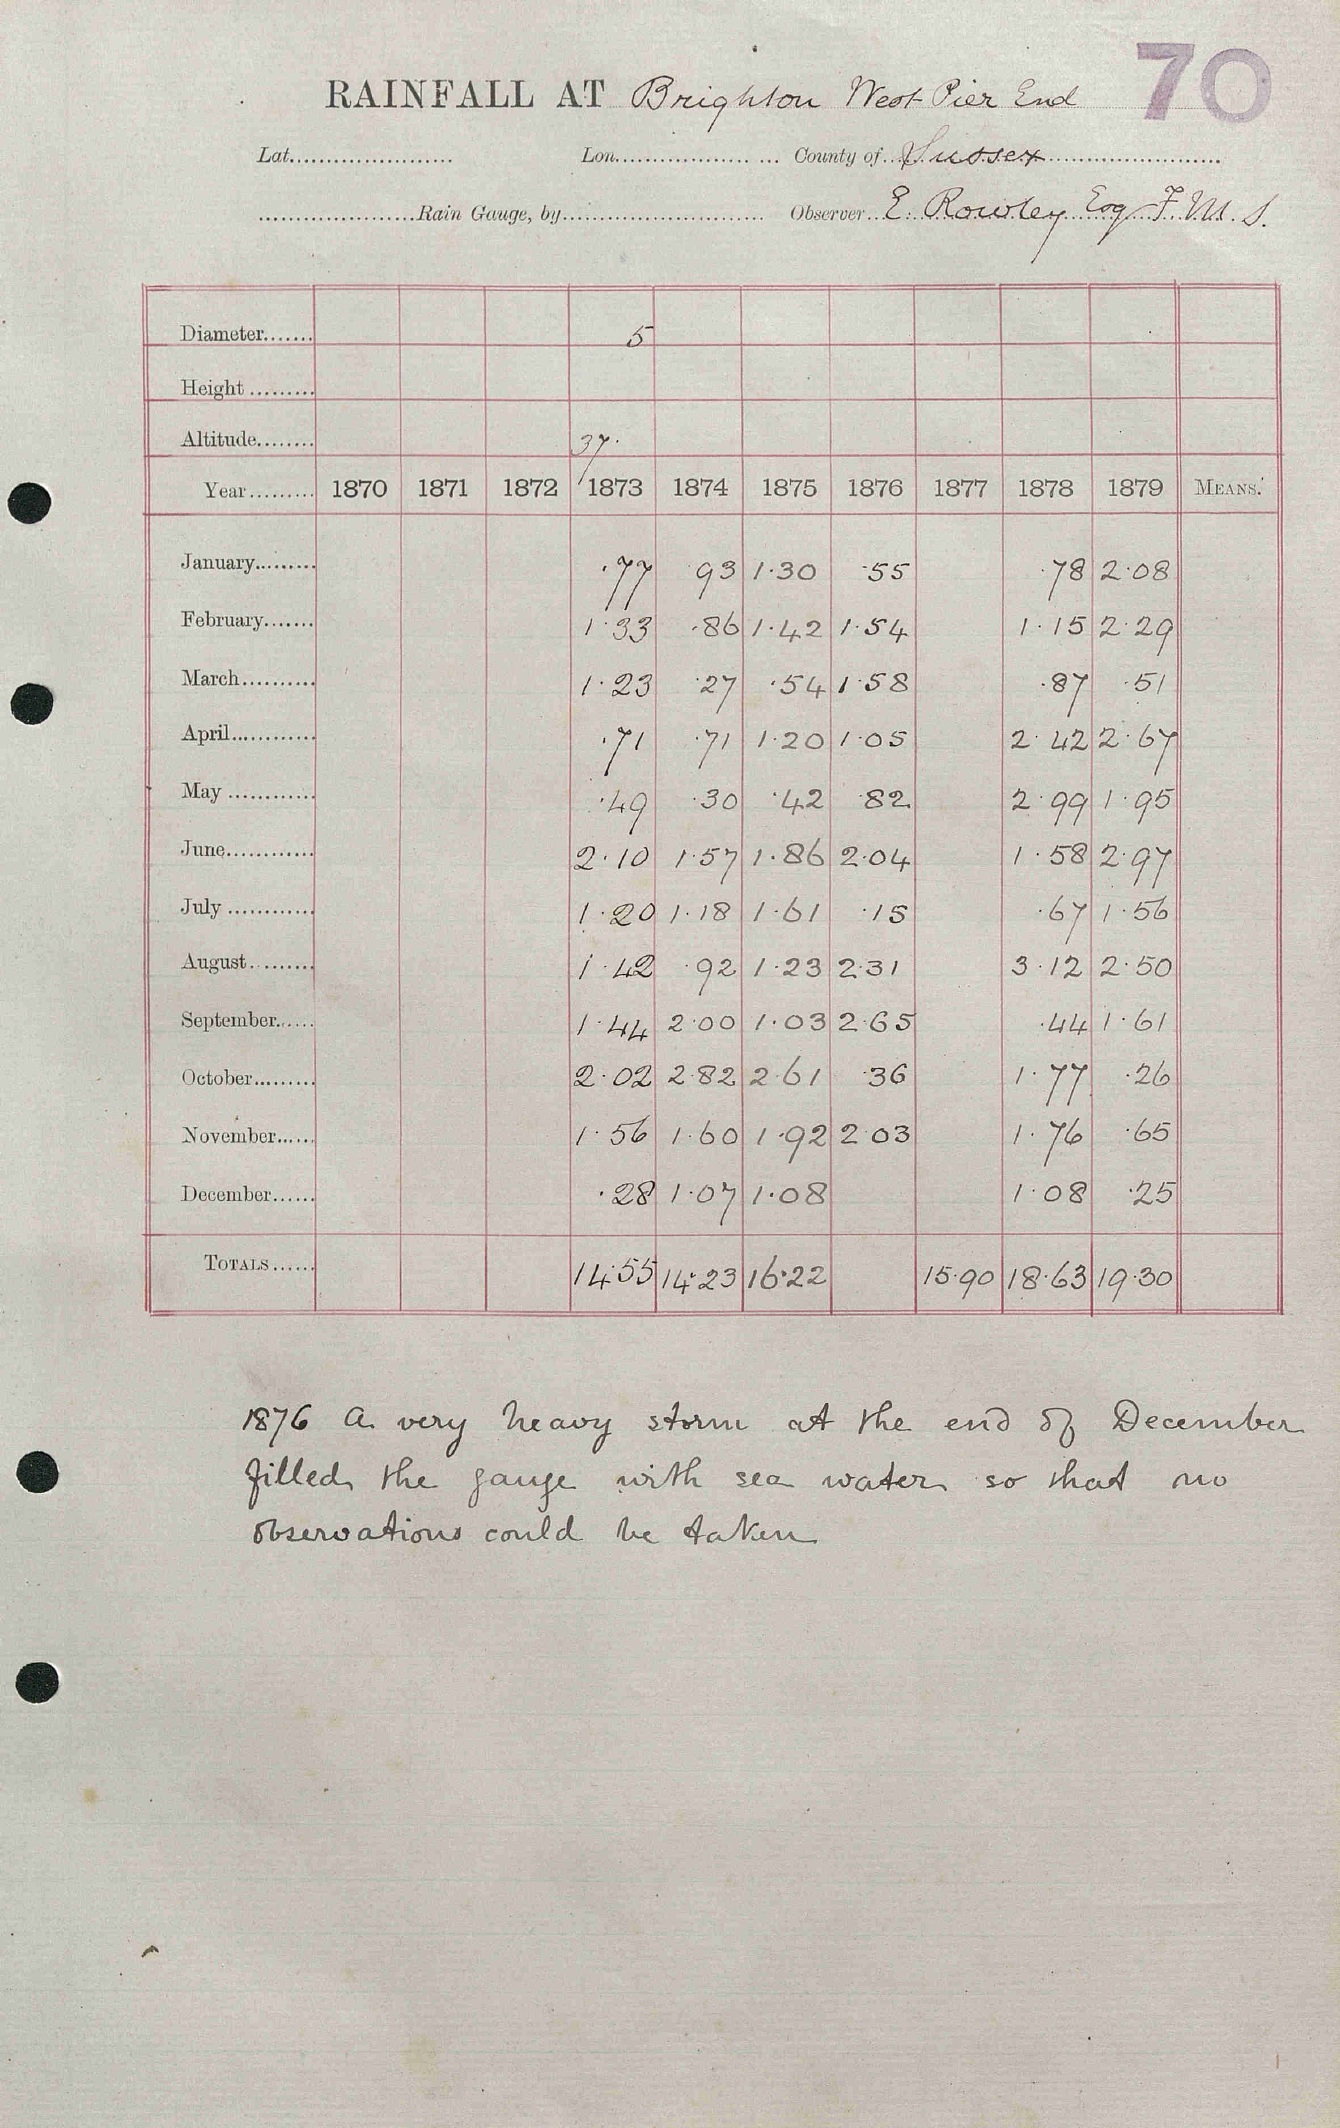 70
RAINFALL AT Brighton West Pier End
Lat...................... Lon.................. ... County of Sussex
.....................Rain Gauge, by........................... Observer E. Rowley Esq F.M.S.
Diameter....... 5
Height .........
Altitude........ 37.
Year......... 1870 1871 1872 1873 1874 1875 1876 1877 1878 1879 MEANS.
January......... .77 93 1.30 .55 .78 2.08
February....... 1.33 .86 1.42 1.54 1.15 2.29
March.......... 1.23 .27 .54 1.58 .87 .51
April............ .71 .71 1.20 1.05 2.42 2.67
May ............ .49 .30 .42 .82 2.99 1.95
June............ 2.10 1.57 1.86 2.04 1.58 2.97
July ............ 1.20 1.18 1.61 .15 .67 1.56
August......... 1.42 .92 1.23 2.31 3.12 2.50
September...... 1.44 2.00 1.03 2.65 .44 1.61
October......... 2.02 2.82 2.61 .36 1.77 .26
November...... 1.56 1.60 1.92 2.03 1.76 .65
December...... .28 1.07 1.08 1.08 .25
TOTALS...... 14.55 14.23 16.22 15.90 18.63 19.30
1876 A very heavy storm at the end of December
filled the gauge with sea water so that no
observations could be taken